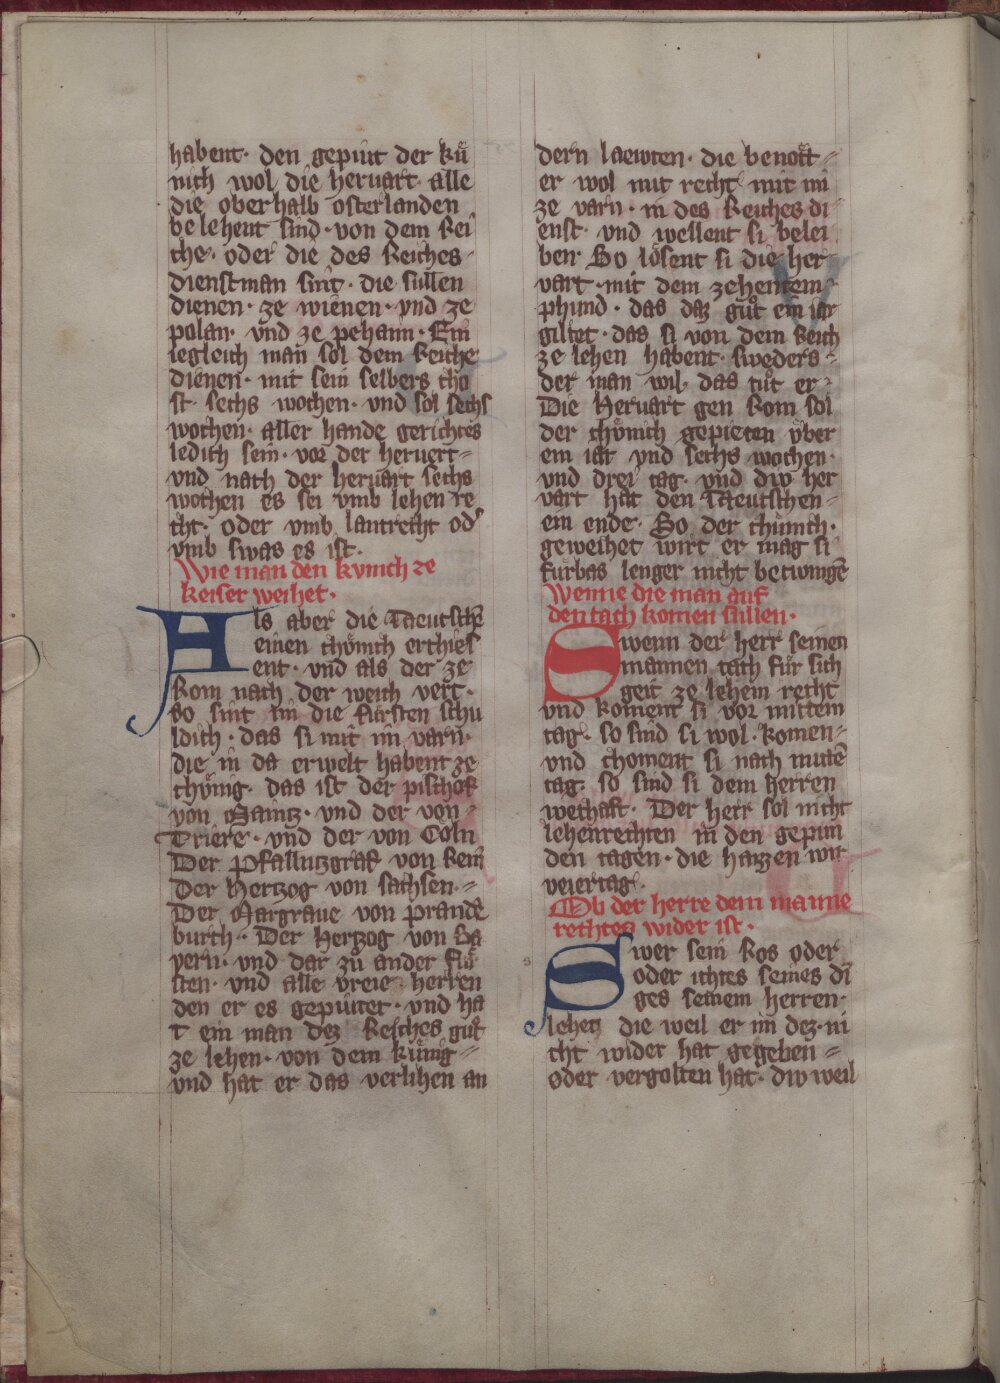 habent· den gepiut der kuͤ
nich wol die heruart· alle
die oberhalb osterlanden
belehent sind· von dem Rei
che· oder die des Reiches
dienstman sint· die sullen
dienen· ze wienen· vnd ze
polan· vnd ze pehaim· Ein
iegleich man sol dem Reiche
dienen· mit sein selbers cho
st· sechs wochen· vnd sol sechs
wochen· aller hande gerichtes
ledich sein· vor der heruert-
vnd nach der heruart sechs
wochen es sei vmb lehen re
cht· oder vmb lantrecht od᷎
vmb swas es ist·
Wie man den kvnich ze
keiser weihet·
Als aber die Taeutschē
einen chönich erchies
ent· vnd als der ze
Rom nach der weich vert·
So sint im die fürsten schu
ldich· das si mit im varn·
die in da erwelt habent ze
chönig· das ist der pischof
von Maintz· vnd der von
Triere· vnd der von Cöln
Der Pfallntzgraf von Rein
Der Hertzog von sachsen·-
Der Margraue von prandē
burch·· Der Hertzog von Ba
yern· vnd dar zuͦ ander fuͤr
sten· vnd alle vreie herren
den er es gepiutet· vnd ha
t ein man dez Reiches guͦt
ze lehen· von dem kuͤnig-
vnd hat er das verlihen an
dern laewten· die benött-
er wol mit recht mit im
ze varn· in des Reiches di
enst· vnd wellent si belei
ben· So lösent si die her-
vart· mit dem zehentem-
phund· das daz guͦt ein iar
giltet· das si von dem Reich
ze lehen habent· sweders-
der man wil· das tuͦt er-
Die Heruart gen Rom sol
der chönich gepieten über
ein iar vnd sechs wochen·
vnd drei tag· vnd diw her
vart hat den Taeutschen-
ein ende· So der chünich·
geweihet wirt er mag si
fürbas lenger nicht betwingē
Wenne die man auf
den tach komen sullen·
Swenn der herr seinen
mannen tach für sich
geit ze lehein recht
vnd koment si vor mittem
tag· so sind si wol· komen-
vnd choment si nach mittē
tag· so sind si dem herren
wethaft· Der herr sol nicht
lehenrechten in den gepun
den tagen· die haizzen wir
veiertag·
Ob der herre dem manne
rechtens wider ist·
Swer sein Ros oder
oder ichtes seines di
ges seinem herren·
lehen die weil er im dez· ni
cht wider hat gegeben-
oder vergolten hat· diw weil